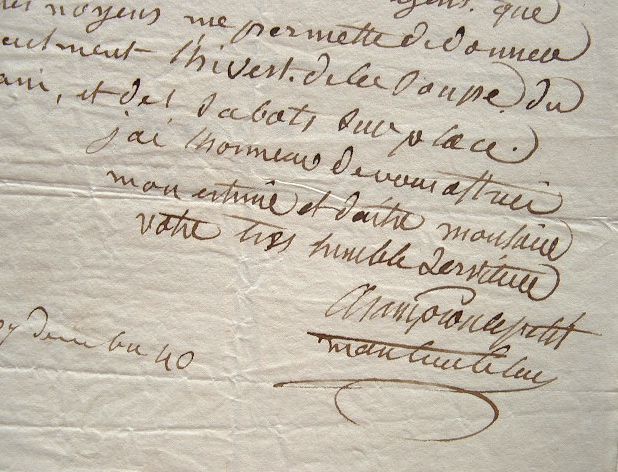 que
moyens me permette de donner
seulment lhivert. de la Soupe. du
et des Sabots sur place.
jai lhonneur de vous assurer
mon estime et daitre monsieur
votre tres humble Serviteur
Champion le petit
manteau bleu
40